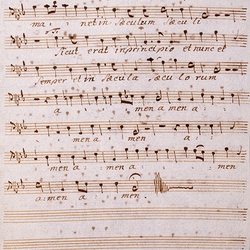 ma: net in sæculum sæculi
Sicut erat in principio et nunc et
semper et in sæcula sæculorum
a men a men a
men a men a
men a men a men
a: men a men